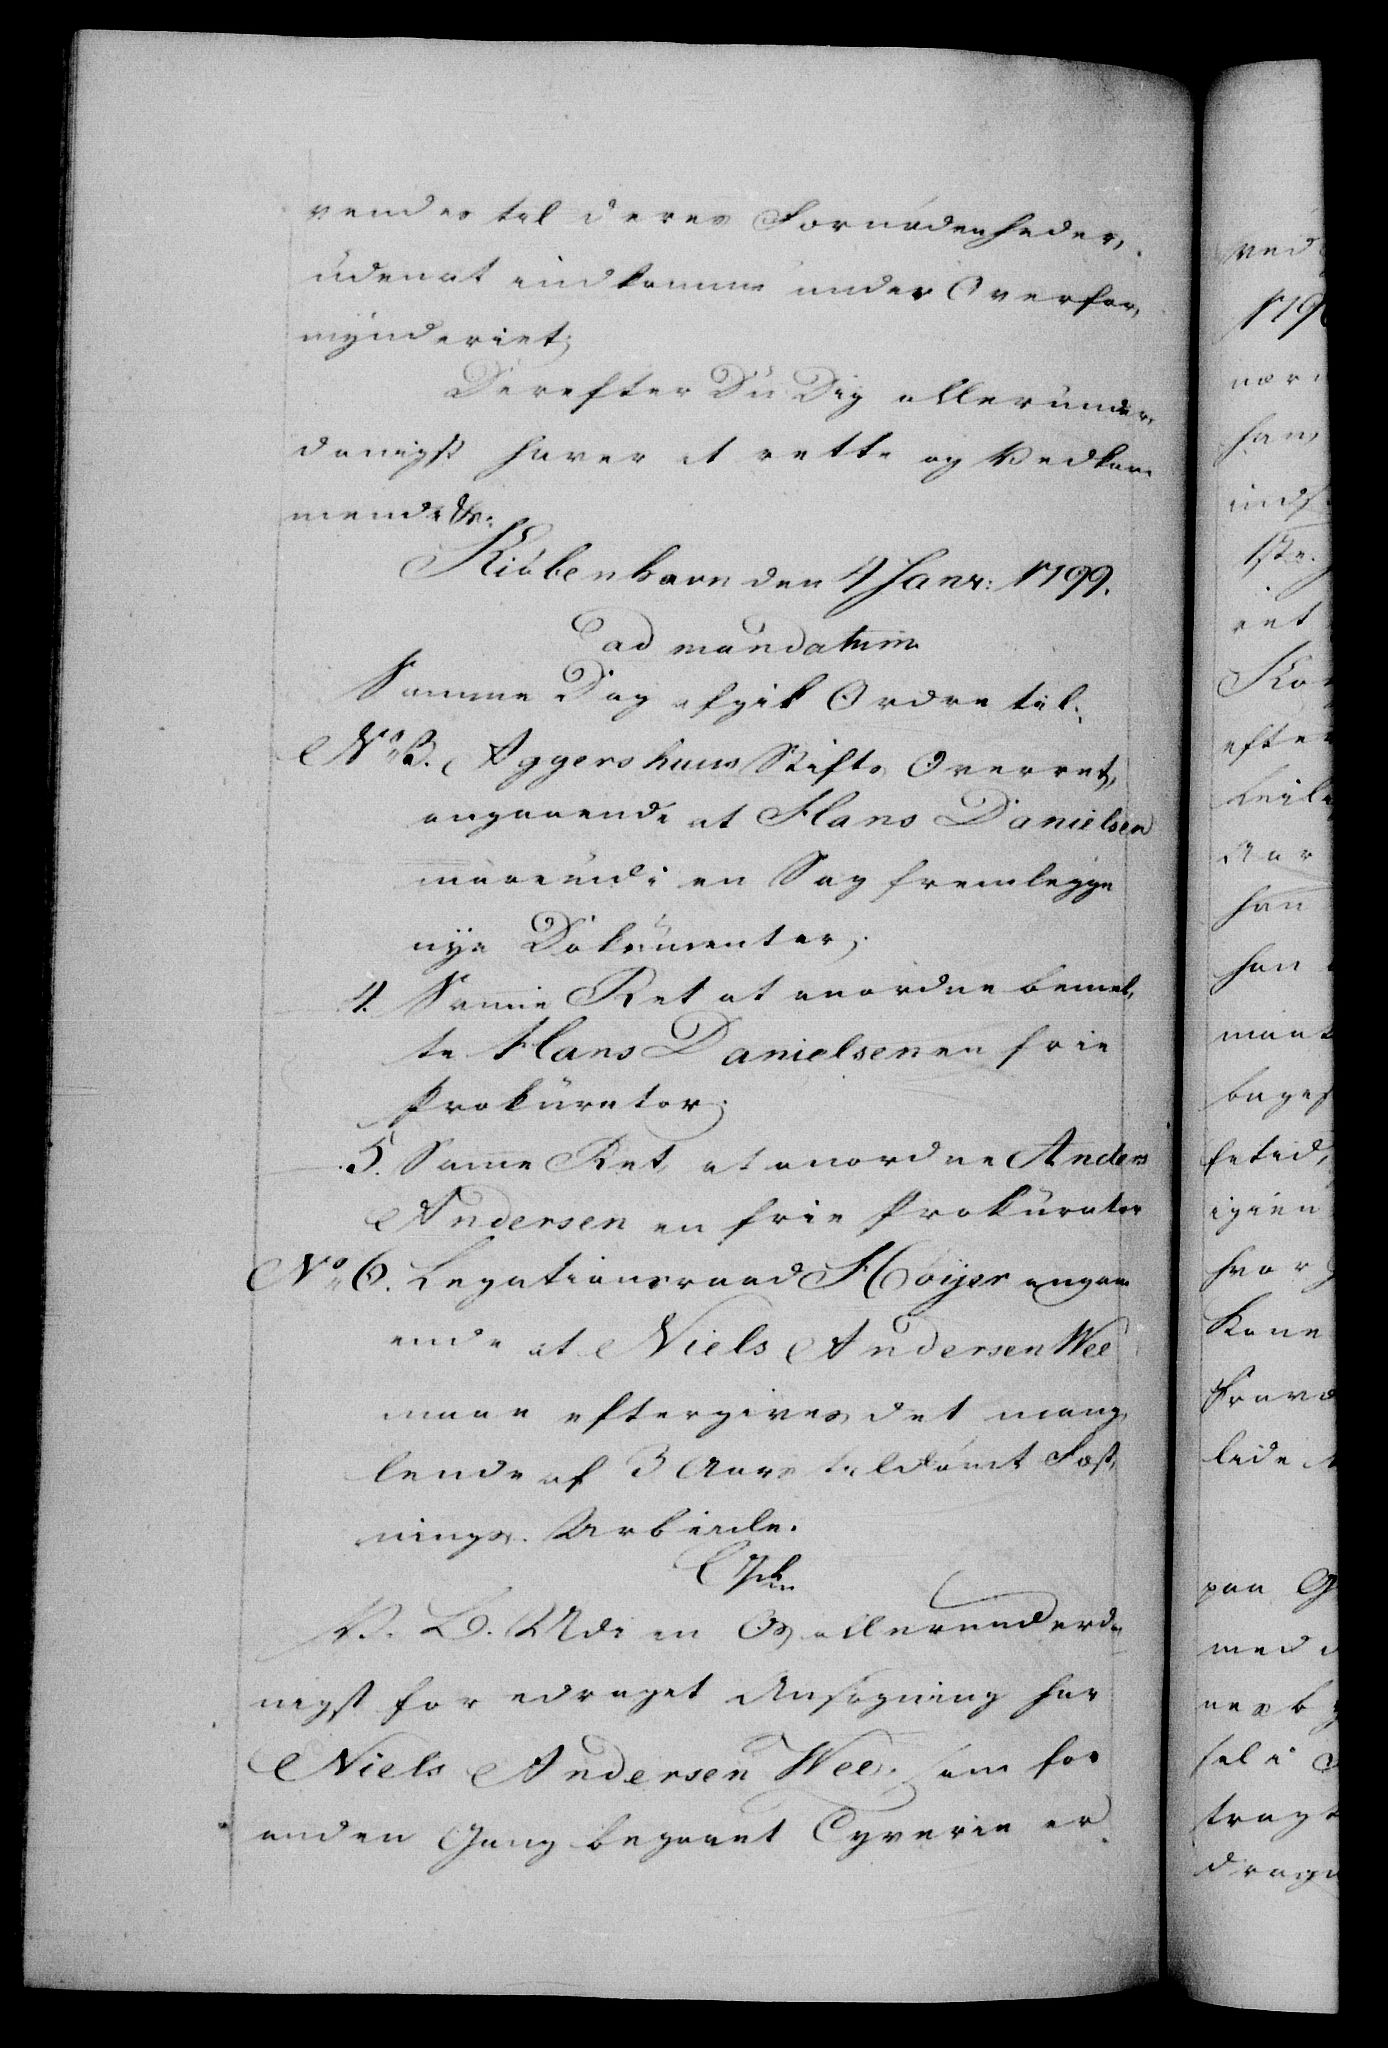 vendes til deres Fornødenheder,
uden at indkomme under Overfor,
mynderiet;
Derefter Du Dig allerunder,
danigst haver at rette og Vedkom
mende &c:
Kiøbenhavn den 4 Janr: 1799.
ad mandatum
Samme Dag afgik Ordre til:
No 3. Aggershuus Stifts Overret,
angaaende at Hans Danielsen
maae udi en Sag fremlegge
nye Dokumenter;
4. Samme Ret at anordne bemel,
te Hans Danielsen en frie
Prokurator;
5. Samme Ret, at anordne Anders
Andersen en frie Prokurator
No 6. Legationsraad Høyer angaa
ende at Niels Andersen Wee
maae eftergives det mang,
lende af 3 Aars tildømt Fæst,
nings-Arbeide.
V. G. Udi en Os allerunderda
nigst foredraget Ansøgning har
Niels Andersen Wee, som for
anden Gang begaaet Tyverie er